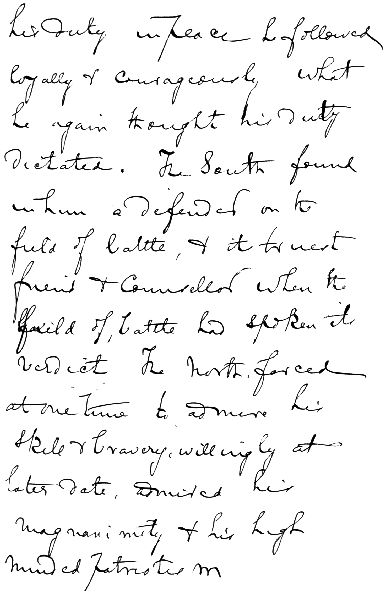 his duty in peace he followed
loyally & courageously what
he again thought his duty
dictated. The South found
in him a defender on the
field of battle, & its truest
friend & Counsellor when the
field of, battle had spoken its
verdict The North, forced
at one time to admire his
skill & bravery, willingly at
later date, admired his
magnanimity & his high
minded patriotism